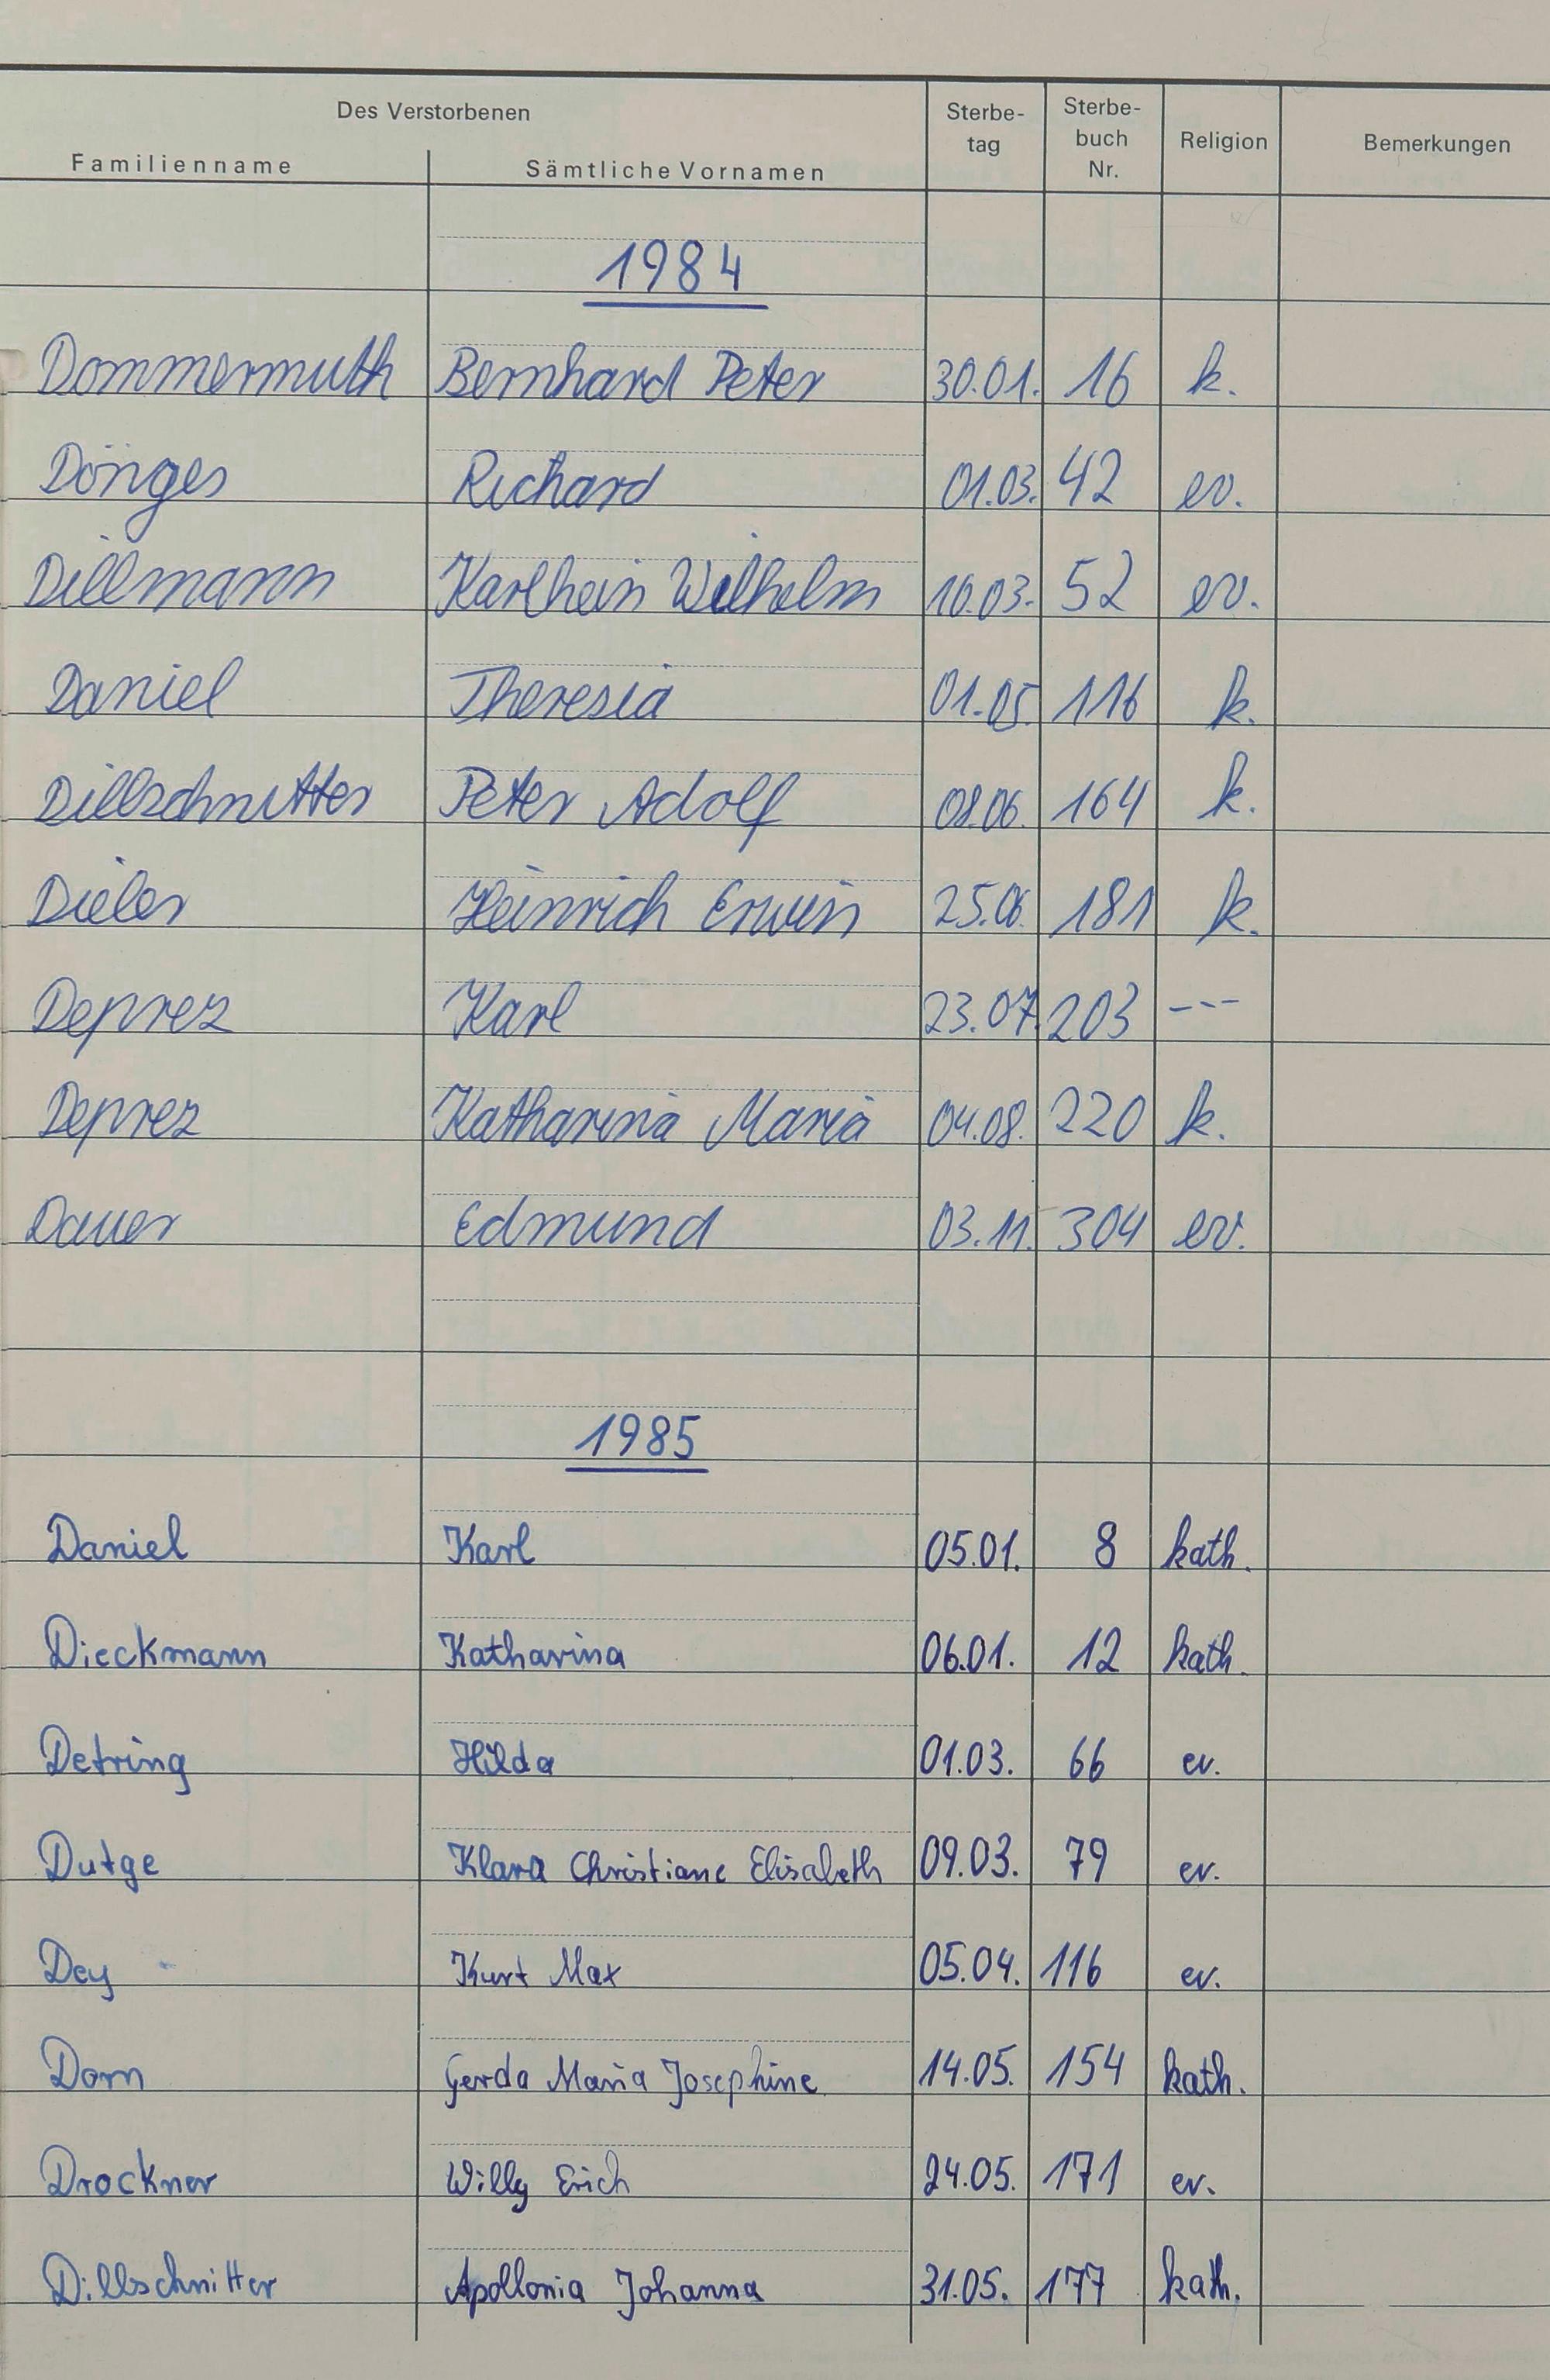 Des Verstorbenen
Familienname Sämtliche Vornamen Sterbe-tag Sterbe-buch Nr. Religion Bemerkungen
1984
Dommermuth Bernhard Peter 30.01. 16 k.
Dönges Richard 01.03. 42 ev.
Dillmann Karlhein Wilhelm 10.03. 52 ev.
Daniel Theresia 01.05. 116 k.
Dillschnitter Peter Adolf 08.06. 164 k.
Dieler Heinrich Erwin 25.06. 181 k.
Deprez Karl 23.07. 203 ---
Deprez Katharina Maria 04.08. 220 k.
Dauer Edmund 03.11. 304 ev.
1985
Daniel Karl 05.01. 8 kath.
Dieckmann Katharina 06.01. 12 kath.
Detring Hilda 01.03. 66 ev.
Dutge Klara Christiane Elisabeth 09.03. 79 ev.
Dey Kurt Max 05.04. 116 ev.
Dorn Gerda Maria Josephine 14.05. 154 kath.
Drockner Willy Erich 24.05. 171 ev.
Dillschnitter Apollonia Johanna 31.05. 177 kath.